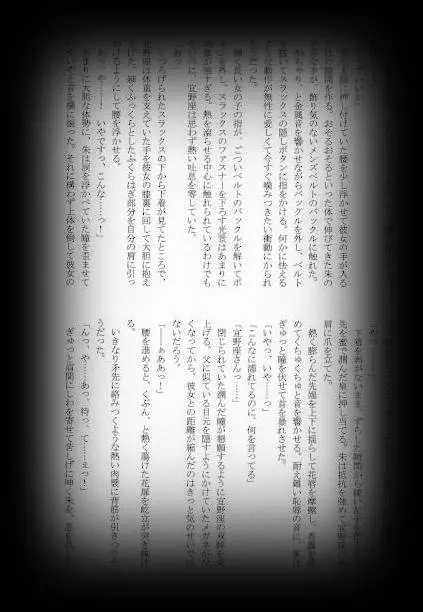 を押し付けていた腰を少し浮かせて彼女の手が入る
けの隙間を作る。おそるおそるといった体で伸びてきた朱の
が、飾り気のないメンズベルトのバックルに触れた。
がちゃり、と金属音を響かせながらバックルを外し、ベルト
抜いてスラックスの隠しボタンに指をかける。何かに怯える
な動作が無性に愛しくて今すぐ噛みつきたい衝動にかられ
だった。
長い女の子の指が、ごついベルトのバックルを解いてボ
外し、スラックスのファスナーを下ろす光景はあまりに
激が強すぎる。熱を滾らせる中心に触れられているわけでも
に、宜野座は思わず熱い吐息を零していた。
あっ」
つろげられたスラックスの下から下着が見えてたところで、
宜野座は体重を支えていた手を彼女の膝裏に回して大胆に抱え
た。細くふっくらとしたふくらはぎ部分を自分の肩に引っ
けるようにして腰を浮かせる。
あっ、や……！　いやですっ、こんな……っ！」
まりに大胆な体勢に、朱は涙を浮かべていた瞳を歪ませて
いやと首を横に振った。それに構わず上体を倒して彼女の
やっ
下着を剥がないまま、
先を蜜で潤んだ泉に押し当てる。朱は抵抗を強めて宜野座の
肩に爪を立てた。
熱く膨らんだ先端を上下に揺らして花唇を摩擦し、
めてくちゅくちゅと音を響かせる。耐え難い恥辱の音に、朱は
ぎゅっと瞳を伏せて首を暴れさせた。
「いやっ、いや……っ」
「こんなに濡れてるのに、何を言ってる」
「宜野座さんっ……」
閉じられていた潤んだ瞳が懇願するように宜野座の双眸を見
上げる。父に似ている目元を隠すようにかけていたメガネがな
くなってから、彼女との距離が縮んだのはきっと気のせいでは
ないだろう。
「――ぁああっ！」
腰を進めると、くぷん、と熱く蕩けた花扉を屹立が突き抜け
る。
いきなり矛先に絡みつくような熱い肉襞に背筋が引きつりそ
うだった。
「んっ、や……あっ、待っ、て……ぇっ！」
ぎゅっと眉間にしわを寄せて苦しげに呻く朱を、